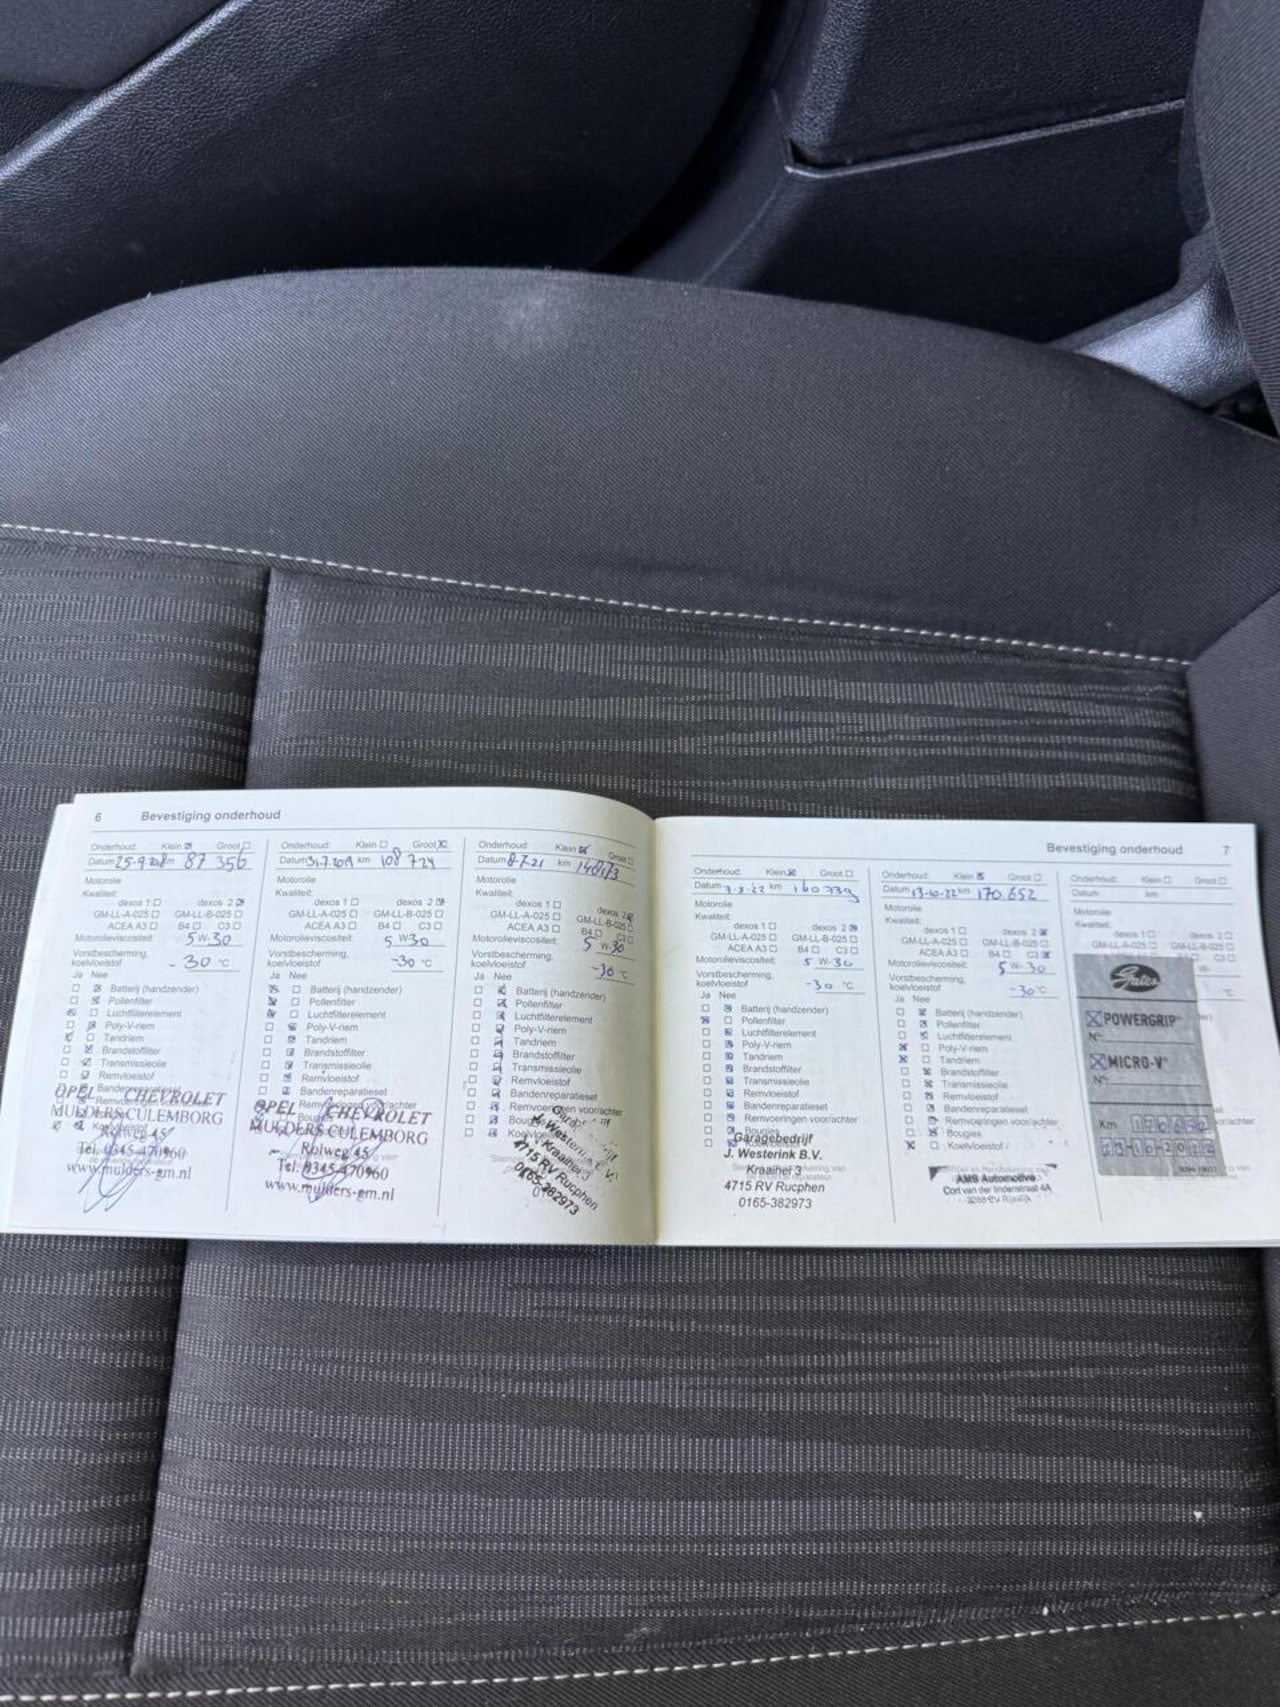 6 Bevestiging onderhoud
Onderhoud: Klein Groot
Datum 25-9-2018 km 87 356
Motorolie
Kwaliteit:
dexos 1 dexos 2
GM-LL-A-025 GM-LL-B-025
ACEA A3 B4 C3
Motorolieviscositeit: 5 W-30
Vorstbescherming,
koelvloeistof -30 °C
Ja Nee
Batterij (handzender)
Pollenfilter
Luchtfilterelement
Poly-V-riem
Tandriem
Brandstoffilter
Transmissieolie
Remvloeistof
Bandenreparatieset
OPEL CHEVROLET
MULDERS CULEMBORG
Rolweg 45
Tel. 0345-470960
www.mulders-gm.nl
Onderhoud: Klein Groot
Datum 31-7-2019 km 108 724
Motorolie
Kwaliteit:
dexos 1 dexos 2
GM-LL-A-025 GM-LL-B-025
ACEA A3 B4 C3
Motorolieviscositeit: 5 W30
Vorstbescherming,
koelvloeistof -30 °C
Ja Nee
Batterij (handzender)
Pollenfilter
Luchtfilterelement
Poly-V-riem
Tandriem
Brandstoffilter
Transmissieolie
Remvloeistof
Bandenreparatieset
OPEL CHEVROLET
MULDERS CULEMBORG
Rolweg 45
Tel. 0345-470960
www.mulders-gm.nl
Onderhoud: Klein Groot
Datum 8-7-21 km
Motorolie
Kwaliteit:
dexos 1 dexos 2
GM-LL-A-025 GM-LL-B-025
ACEA A3 B4 C3
Motorolieviscositeit: 5 W-30
Vorstbescherming,
koelvloeistof -30 °C
Ja Nee
Batterij (handzender)
Pollenfilter
Luchtfilterelement
Poly-V-riem
Tandriem
Brandstoffilter
Transmissieolie
Remvloeistof
Bandenreparatieset
Remvoeringen voor/achter
4715 RV Rucphen
0165-382973
Bevestiging onderhoud 7
Onderhoud: Klein Groot
Datum km 160 339
Motorolie
Kwaliteit:
dexos 1 dexos 2
GM-LL-A-025 GM-LL-B-025
ACEA A3 B4 C3
Motorolieviscositeit: 5 W-30
Vorstbescherming,
koelvloeistof -30 °C
Ja Nee
Batterij (handzender)
Pollenfilter
Luchtfilterelement
Poly-V-riem
Tandriem
Brandstoffilter
Transmissieolie
Remvloeistof
Bandenreparatieset
Remvoeringen voor/achter
Bougies
Garagebedrijf
J. Westerink B.V.
Kraaihef 3
4715 RV Rucphen
0165-382973
Onderhoud: Klein Groot
Datum 13-10-22 km 170.652
Motorolie
Kwaliteit:
dexos 1 dexos 2
GM-LL-A-025 GM-LL-B-025
ACEA A3 B4 C3
Motorolieviscositeit: 5 W-30
Vorstbescherming,
koelvloeistof -30 °C
Ja Nee
Batterij (handzender)
Pollenfilter
Luchtfilterelement
Poly-V-riem
Tandriem
Brandstoffilter
Transmissieolie
Remvloeistof
Bandenreparatieset
Remvoeringen voor/achter
Bougies
Koelvloeistof
AMB Automotive
Cort van der lindenstraat 4A
Onderhoud: Klein Groot
Datum: km
Motorolie
Kwaliteit:
dexos 1 dexos 2
GM-LL-A-025 GM-LL-B-025
Gates
POWERGRIP™
N°
MICRO-V™
N°
Km 170652
13-10-2022